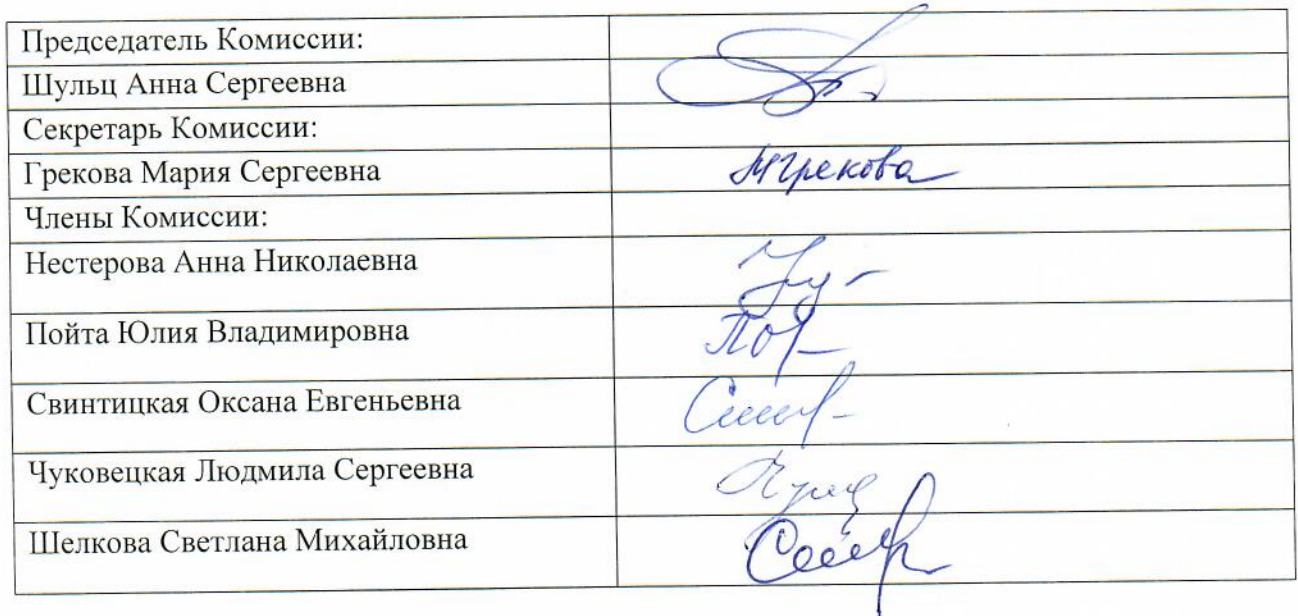 Председатель Комиссии:
Шульц Анна Сергеевна
Секретарь Комиссии:
Грекова Мария Сергеевна МГрекова
Члены Комиссии:
Нестерова Анна Николаевна
Пойта Юлия Владимировна
Свинтицкая Оксана Евгеньевна
Чуковецкая Людмила Сергеевна
Шелкова Светлана Михайловна